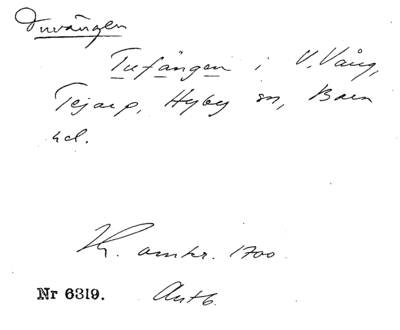 Duvängen
Tufängen i V. Vång,
Tejarp, Hyby sn, Bara
hd.
K. omkr. 1700.
Nr 6319. Antb.